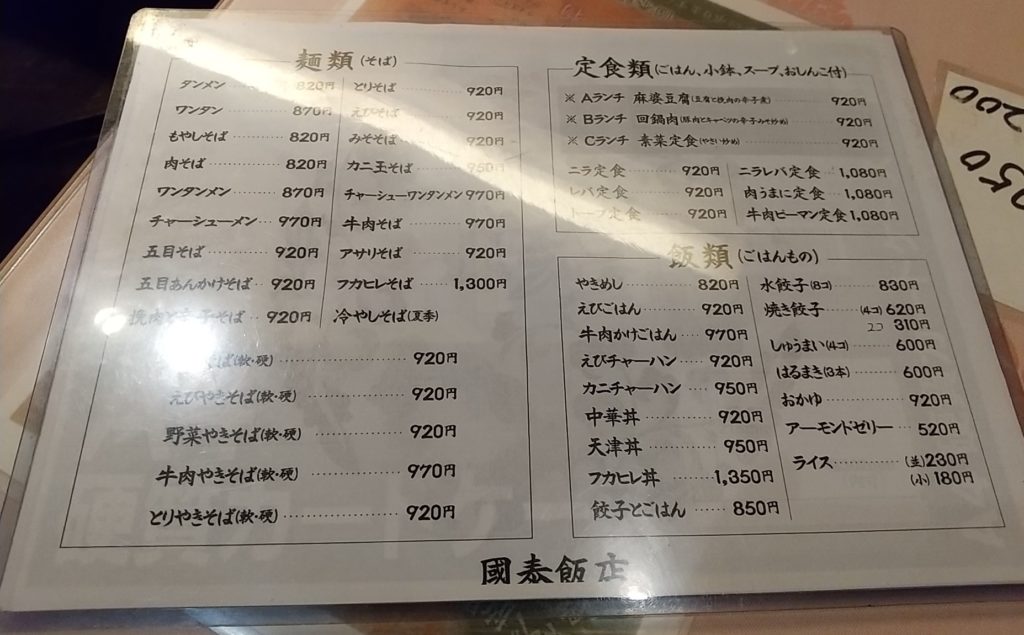 麺類(そば)
タンメン 820円
ワンタン 870円
もやしそば 820円
肉そば 820円
ワンタンメン 870円
チャーシューメン 970円
五目そば 920円
五目あんかけそば 920円
そば 920円
とりそば 920円
えびそば 920円
みそそば 920円
カニ玉そば 950円
チャーシューワンタンメン 970円
牛肉そば 970円
アサリそば 920円
フカヒレそば 1,300円
冷やしそば(夏季)
そば(軟・硬) 920円
えびやきそば(軟・硬) 920円
野菜やきそば(軟・硬) 920円
牛肉やきそば(軟・硬) 970円
とりやきそば(軟・硬) 920円
定食類(ごはん、小鉢、スープ、おしんこ付)
※Aランチ 麻婆豆腐(豆腐と挽肉の辛子煮) 920円
※Bランチ 回鍋肉(豚肉とキャベツの辛子みそ炒め) 920円
※Cランチ 素菜定食(やさい炒め) 920円
ニラ定食 920円
レバ定食 920円
トーフ定食 920円
ニラレバ定食 1,080円
肉うまに定食 1,080円
牛肉ピーマン定食 1,080円
飯類(ごはんもの)
やきめし 820円
えびごはん 920円
牛肉かけごはん 970円
えびチャーハン 920円
カニチャーハン 950円
中華丼 920円
天津丼 950円
フカヒレ丼 1,350円
餃子とごはん 850円
水餃子(8コ) 830円
焼き餃子 (4コ) 620円
2コ 310円
しゅうまい(4コ) 600円
はるまき(3本) 600円
おかゆ 920円
アーモンドゼリー 520円
ライス (並) 230円
(小) 180円
國泰飯店
200